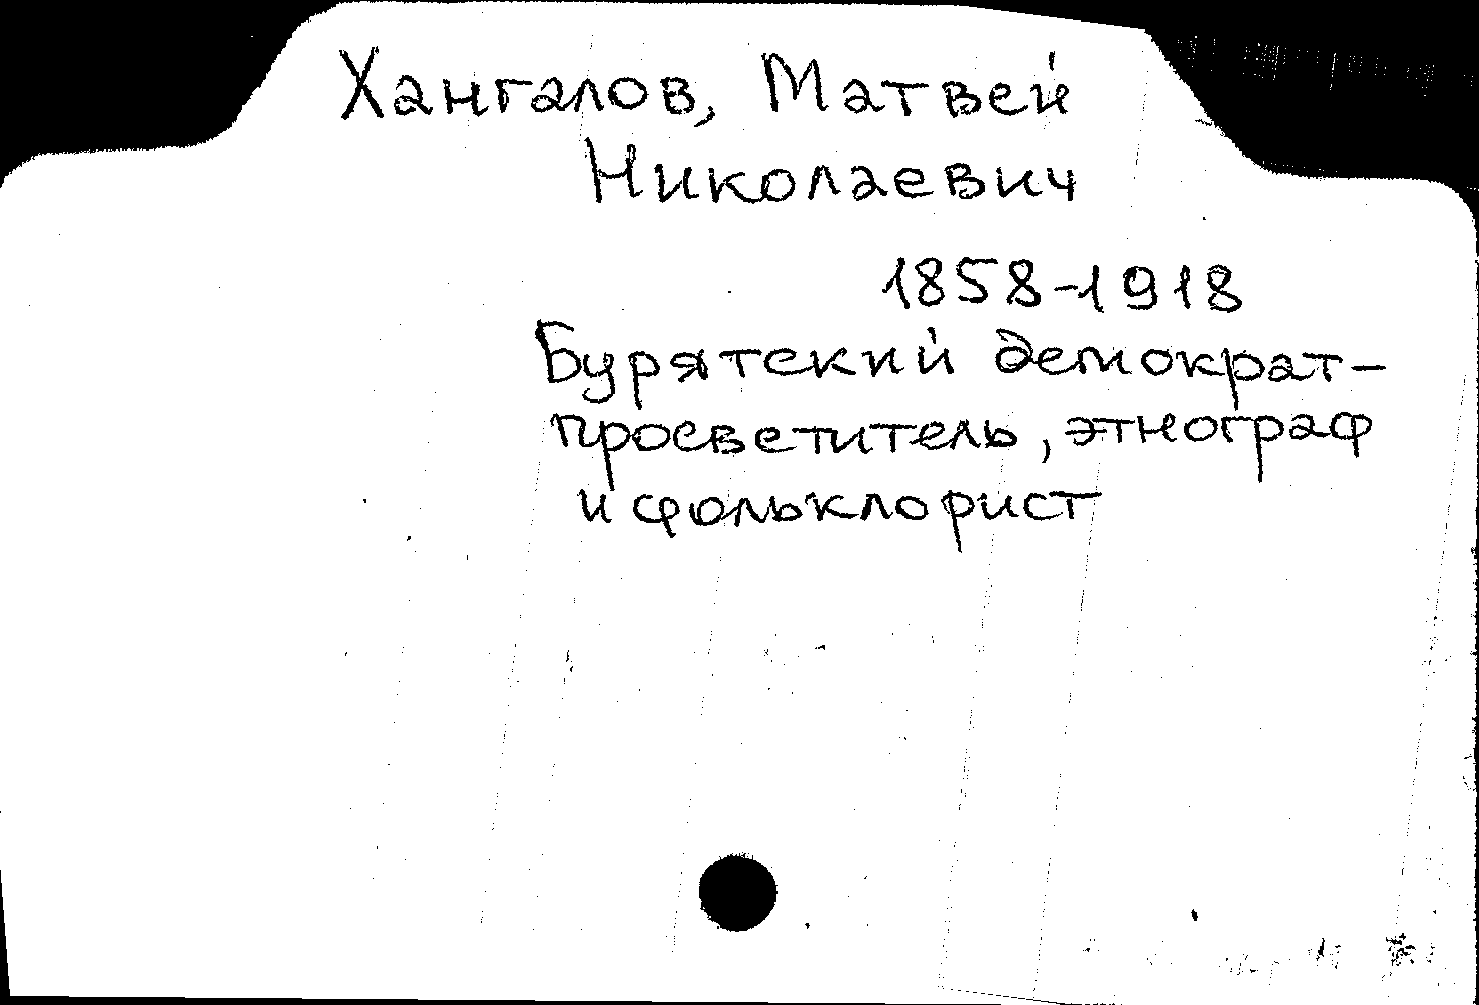 Хангалов, Матвей
Николаевич
1858-1918
Бурятский демократ-
просветитель, этнограф
и фольклорист